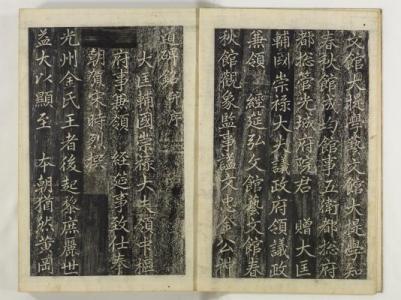 文館大提學藝文館大提學知
春秋館成均館事五衛都摠府
都摠管光城府院君 贈大匡
輔國崇祿大夫議政府領議政
兼領 經筵弘文館藝文館春
秋館觀象監事謚文忠金公神
道碑銘 幷序
大匡輔國崇祿大夫領中樞
府事兼領 經筵事致仕奉
朝賀宋時烈撰
光州金氏王者後起黎庶麗世
益大以顯至 本朝猶然黃岡